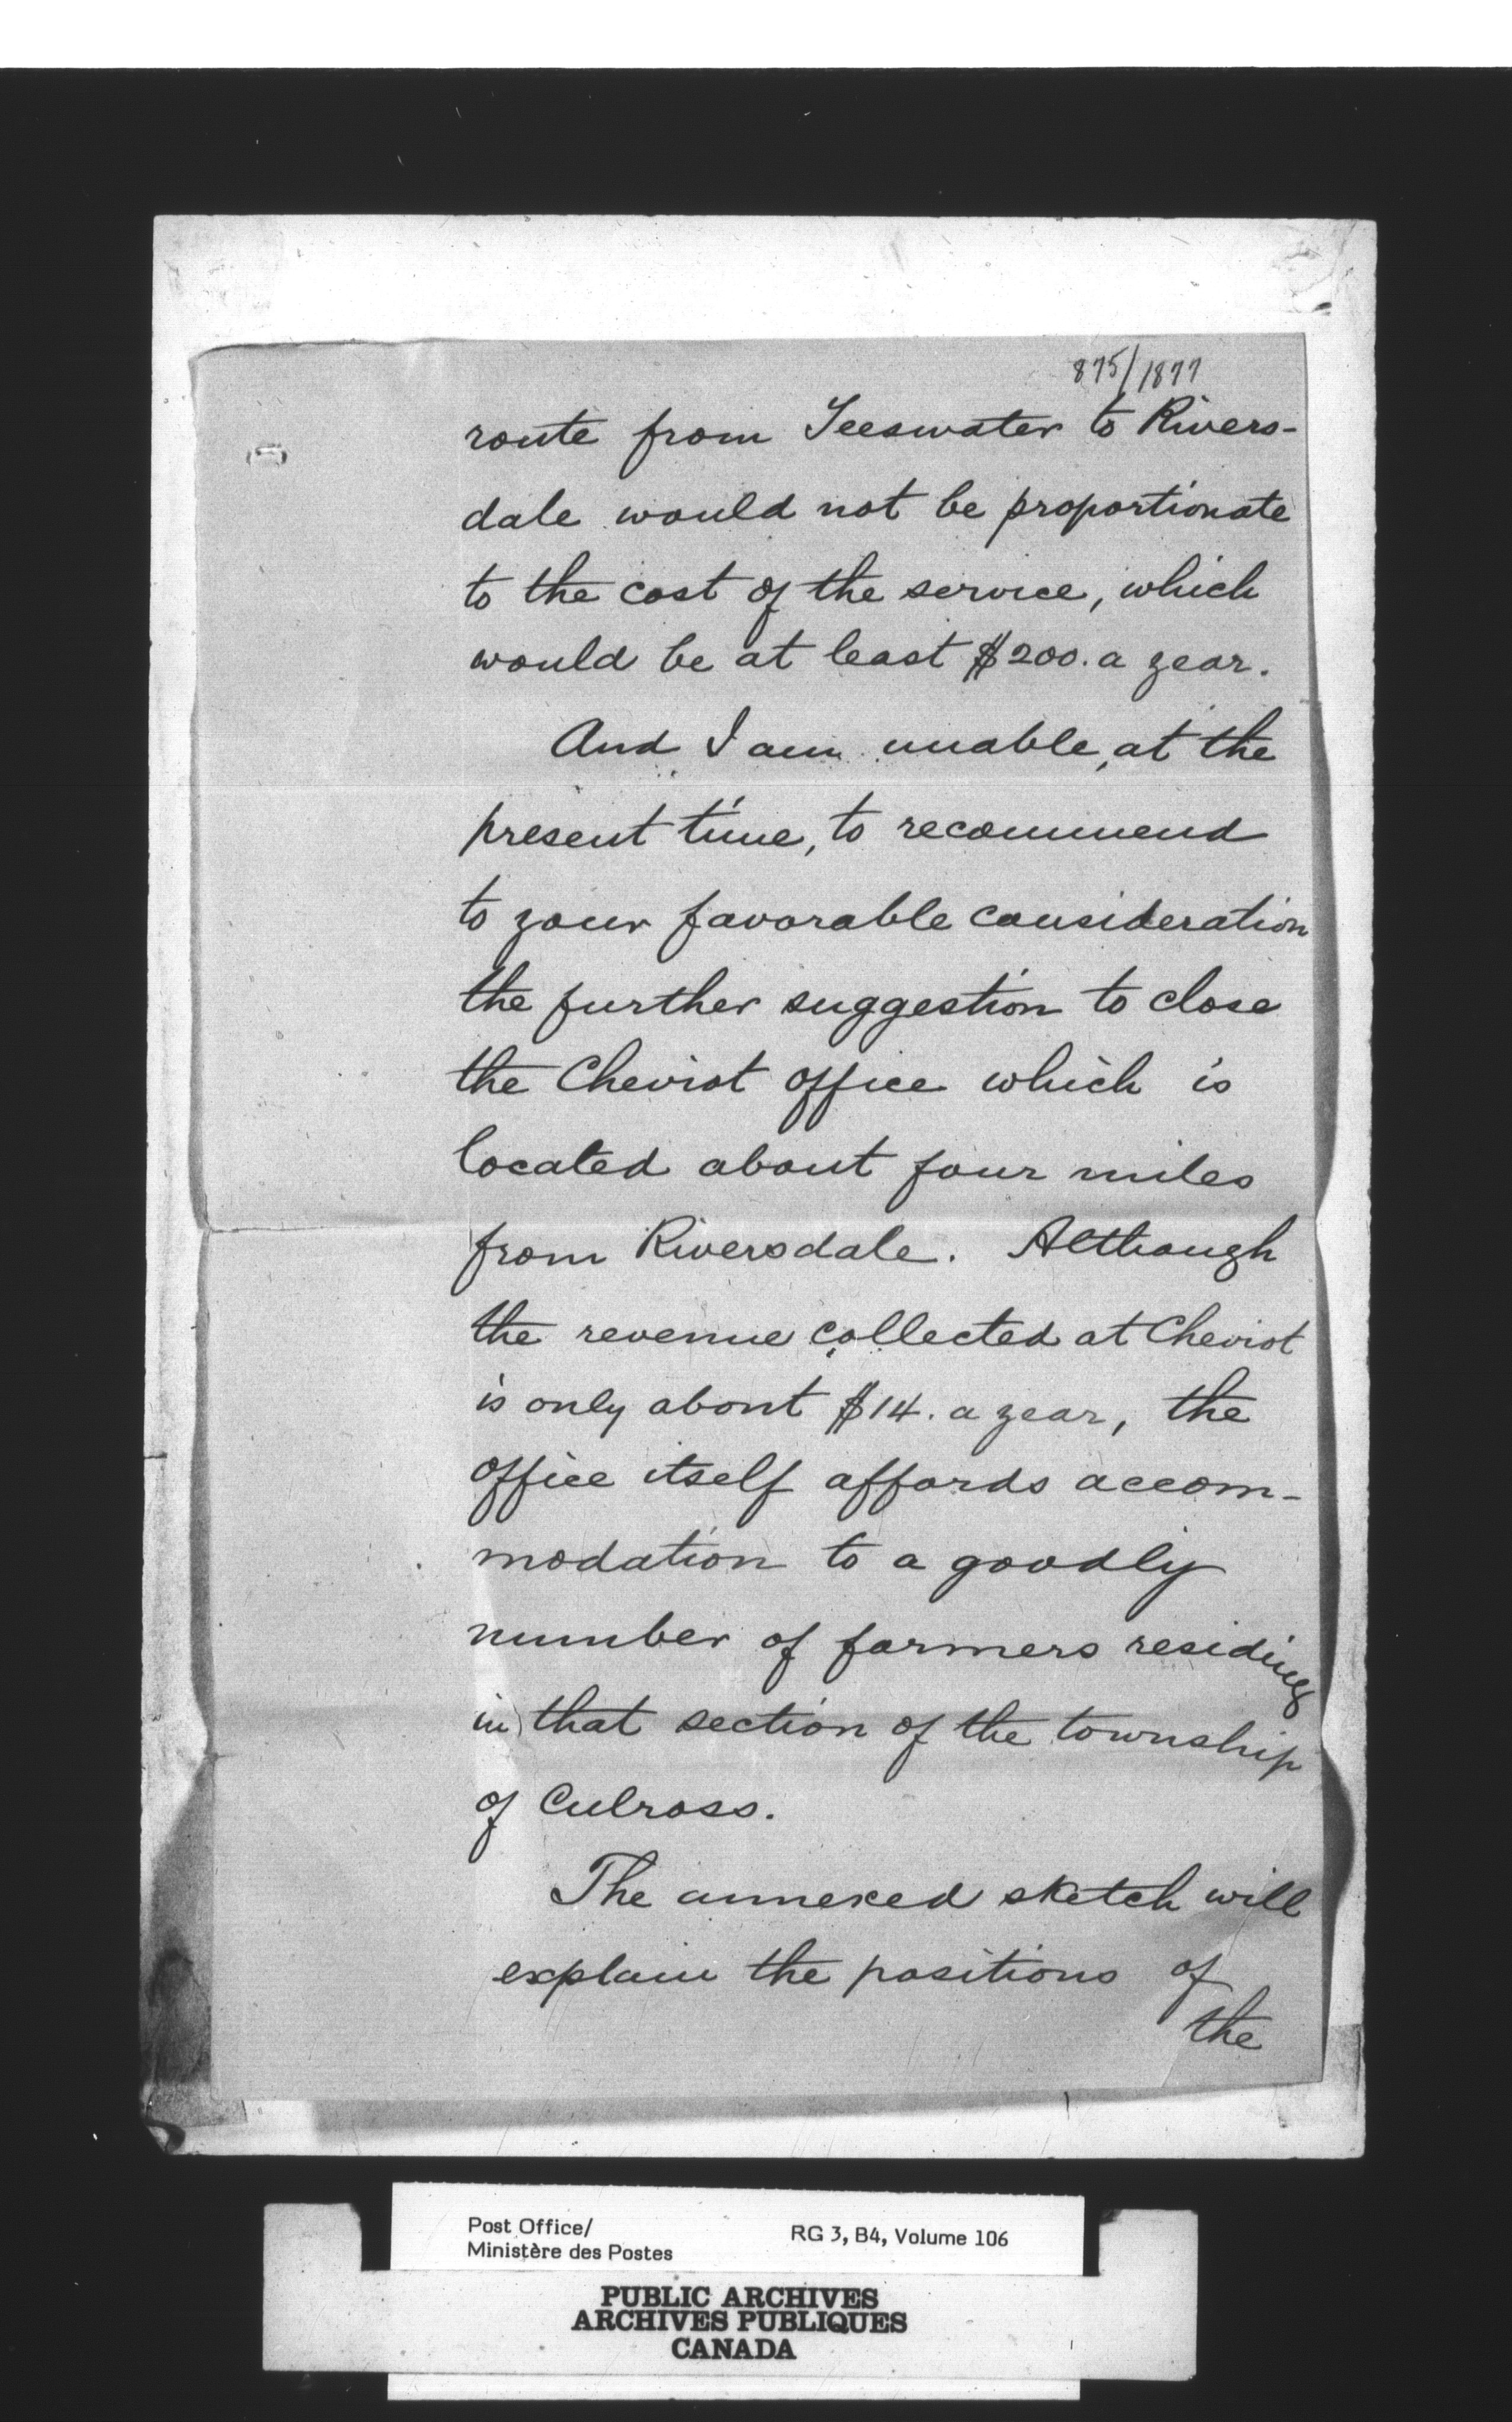 875/1877
route from Teeswater to Rivers-
dale would not be proportionate
to the cost of the service, which
would be at least $200. a year.
And I am unable, at the
present time, to recommend
to your favorable consideration
the further suggestion to close
the Cheviot office which is
located about four miles
from Riversdale. Although
the revenue collected at Cheviot
is only about $14. a year, the
office itself affords accom-
modation to a goodly
number of farmers residing
in that section of the township
of Culross.
The annexed sketch will
explain the positions of
the
Post Office/ RG 3, B4, Volume 106
Ministère des Postes
PUBLIC ARCHIVES
ARCHIVES PUBLIQUES
CANADA